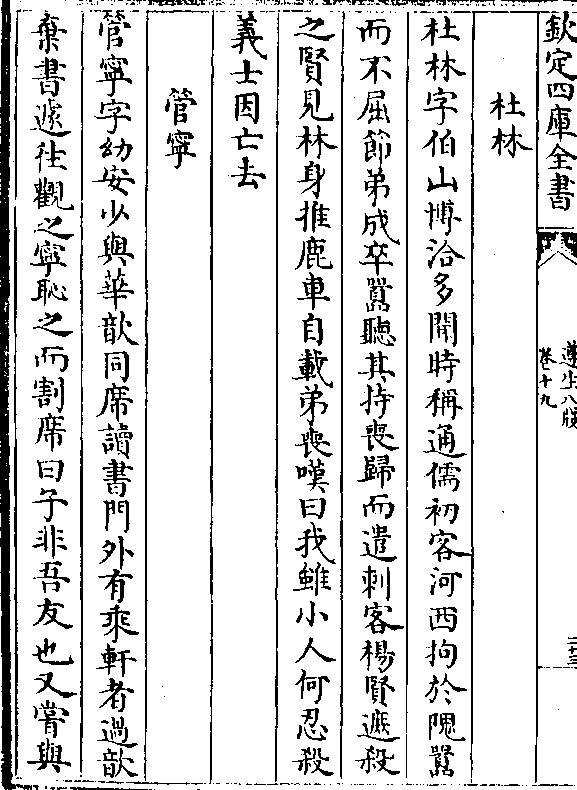 欽定四庫全書
遵生八牋
卷十九
二十三
杜林
杜林字伯山博洽多聞時稱通儒初客河西拘於隗囂
而不屈節弟成卒囂聽其持喪歸而遣刺客楊賢遮殺
之賢見林身推鹿車自載弟喪嘆曰我雖小人何忍殺
義士因亡去
管寧
管寧字幼安少與華歆同席讀書門外有乘軒者過歆
棄書遽往觀之寧恥之而割席曰子非吾友也又嘗與